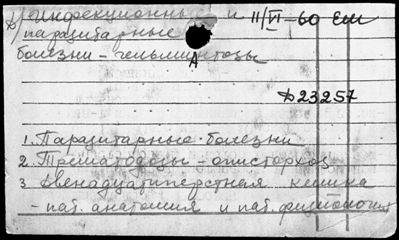 Инфекционные и 11/VI-60 Еш
паразитарные
болезни - гельминтозы
А
Д23257
1. Паразитарные болезни
2. Трематодозы - описторхоз
3. Двенадцатиперстная кишка
- пат. анатомия и пат. физиология